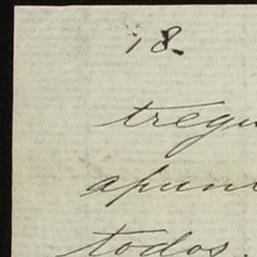 18.
tregu
apun
todos.